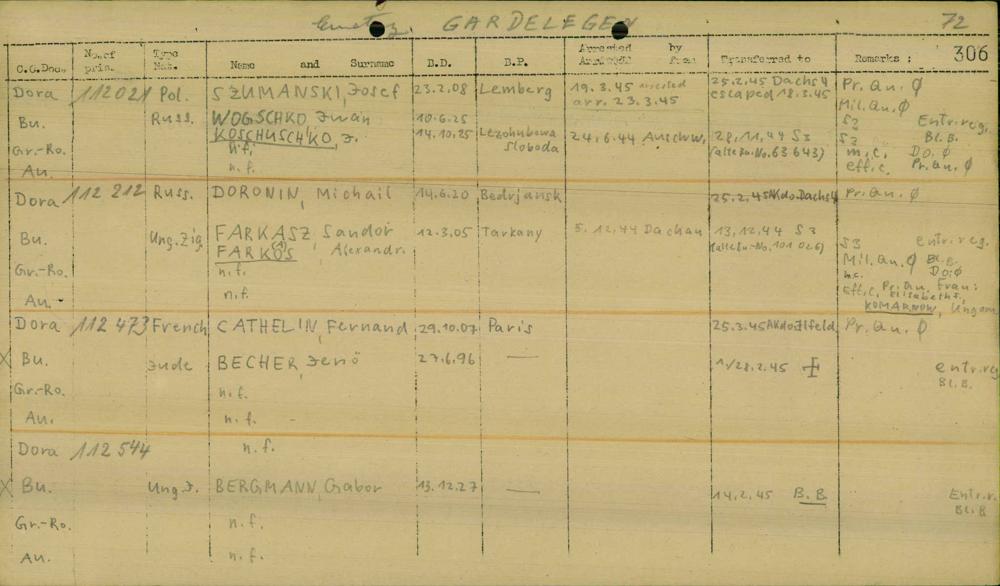 Cmetry. GARDELEGEN 72
C.C.Doc. No.of pris. Type Nat. Name and Surname B.D. B.P. Arrested by from Transferred to Remarks : 306
Dora 112021 Pol. SZUMANSKI, Josef 23.2.08 Lemberg 19.3.45 arrested 25.2.45 Dachs4 Pr. Qu. Ø
arr. 23.3.45 escaped 18.3.45 Mil. Qu. Ø
Bu. Russ. WOGSCHKO Iwan 10.6.25 S2 Entr.reg.
KOSCHUSCHKO, I. 14.10.25 Lezohubowa 24.6.44 Auschw. 28.11.44 S3 S2 Bl.B.
Gr.-Ro. n.f. Sloboda (alte Bu.No. 63643) m.c. Do. Ø
Au. n.f. effic. Pr. Qu. Ø
Dora 112 212 Russ. DORONIN, Michail 14.6.20 Bedrjansk 25.2.45 AKdo.Dachs4 Pr. Qu. Ø
Bu. Ung. Zig. FARKASZ, Sandor 12.3.05 Tarkany 5.12.44 Dachau 13.12.44 S3 S3 entr.reg.
FARKOS (A) Alexandr. (alte Bu.-No. 101026) Mil. Qu. Ø Bl.B.
Gr.-Ro. n.f. m.c. Do: Ø
Au. n.f. Effic. Pr. Qu. Frau:
Elisabeth F.,
KOMARNOW, Ungarn
Dora 112 473 French CATHELIN, Fernand 29.10.07 Paris 25.3.45 AKdo Ilfeld Pr. Qu. Ø
X Bu. Jude BECHER, Jenö 27.6.96 — 1/28.2.45 entr.reg
Bl.B.
Gr.-Ro. n.f.
Au. n.f. -
Dora 112 544 n.f.
X Bu. Ung. J. BERGMANN, Gabor 13.12.27 — 14.2.45 B.B. Entr.r.
Bl.B
Gr.-Ro. n.f.
Au. n.f.